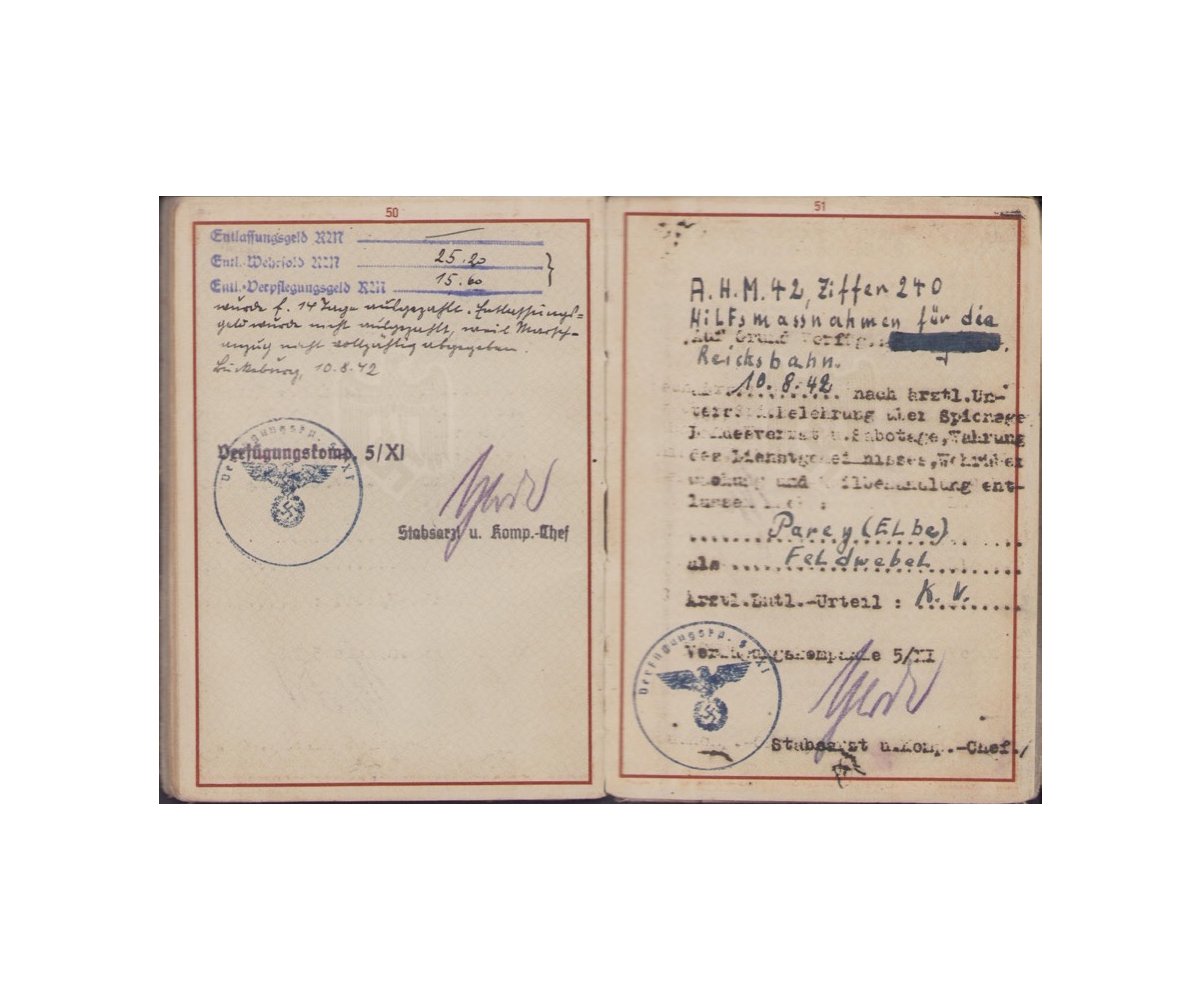 50
Entlassungsgeld RM
Entl.-Wehrsold RM 25.20
Entl.-Verpflegungsgeld RM 15.60
wurde f. 14 Tage ausgezahlt. Entlassungs-
geld wurde nicht ausgezahlt, weil Marsch-
anzug nicht vollzählig abgegeben.
Bückeburg, 10.8.42
Verfügungskomp. 5/XI
Verfügungskp. 5/XI
Stabsarzt u. Komp.-Chef
51
A.H.M.42, Ziffer 240
Hilfsmassnahmen für die
Auf Grund Verfüg.
Reichsbahn.
10.8.42 nach ärztl.Un-
Belehrung über Spionage
Landesverrat u.Sabotage,Wahrung
des Dienstgeheimnisses,
und Heilbehandlung ent-
lassen nach :
Parey (Elbe)
als Feldwebel
Ärztl.Entl.-Urteil : K.V.
Verfügungskompanie 5/XI
Verfügungskp. 5/XI
Stabsarzt u.Komp.-Chef.